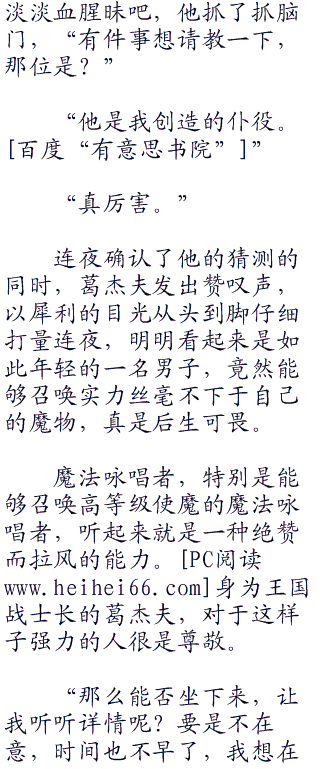 淡淡血腥昧吧，他抓了抓脑
门，“有件事想请教一下，
那位是？”
“他是我创造的仆役。
[百度“有意思书院”]”
“真厉害。”
连夜确认了他的猜测的
同时，葛杰夫发出赞叹声，
以犀利的目光从头到脚仔细
打量连夜，明明看起来是如
此年轻的一名男子，竟然能
够召唤实力丝毫不下于自己
的魔物，真是后生可畏。
魔法咏唱者，特别是能
够召唤高等级使魔的魔法咏
唱者，听起来就是一种绝赞
而拉风的能力。[PC阅读
www.heihei66.com]身为王国
战士长的葛杰夫，对于这样
子强力的人很是尊敬。
“那么能否坐下来，让
我听听详情呢？要是不在
意，时间也不早了，我想在